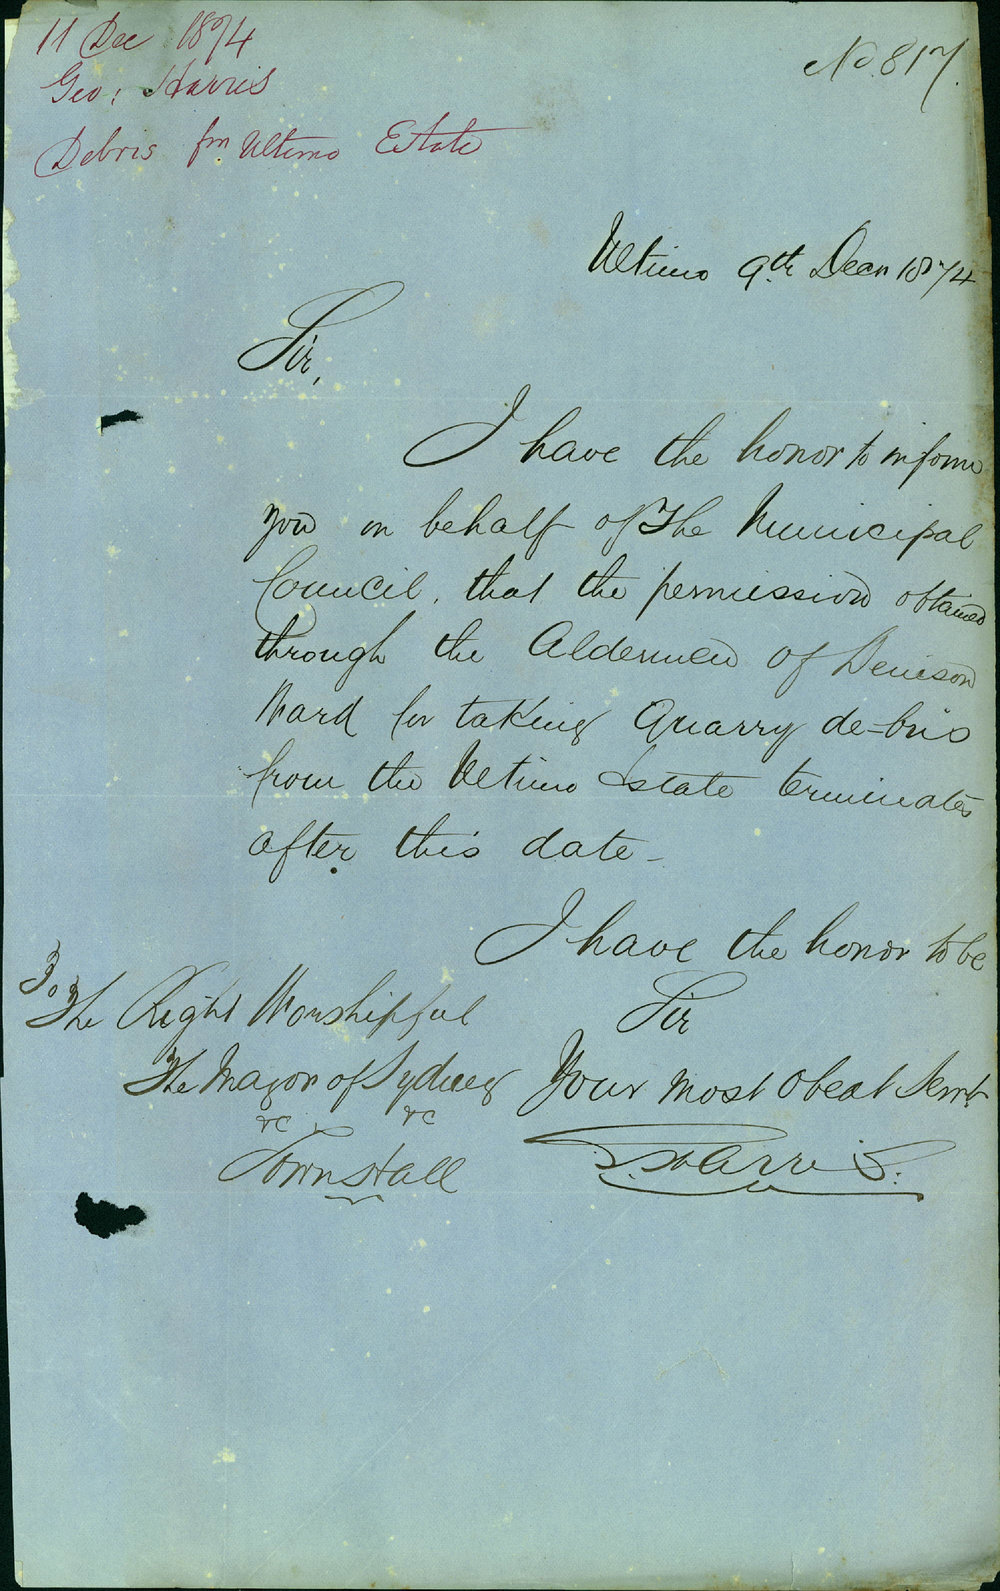 11 Dec 1874
Geo: Harris
Debris fm Ultimo Estate
No. 817.
Ultimo 9th Decr 1874
Sir,
I have the honor to inform
you on behalf of The Municipal
Council, that the permission obtained
through the Aldermen of Denison
Ward for taking Quarry de-bris
from the Ultimo Estate terminates
after this date -
I have the honor to be
Sir
Your most Obedt Servt
Harris.
To
The Right Worshipful
The Mayor of Sydney
&c &c
Town Hall